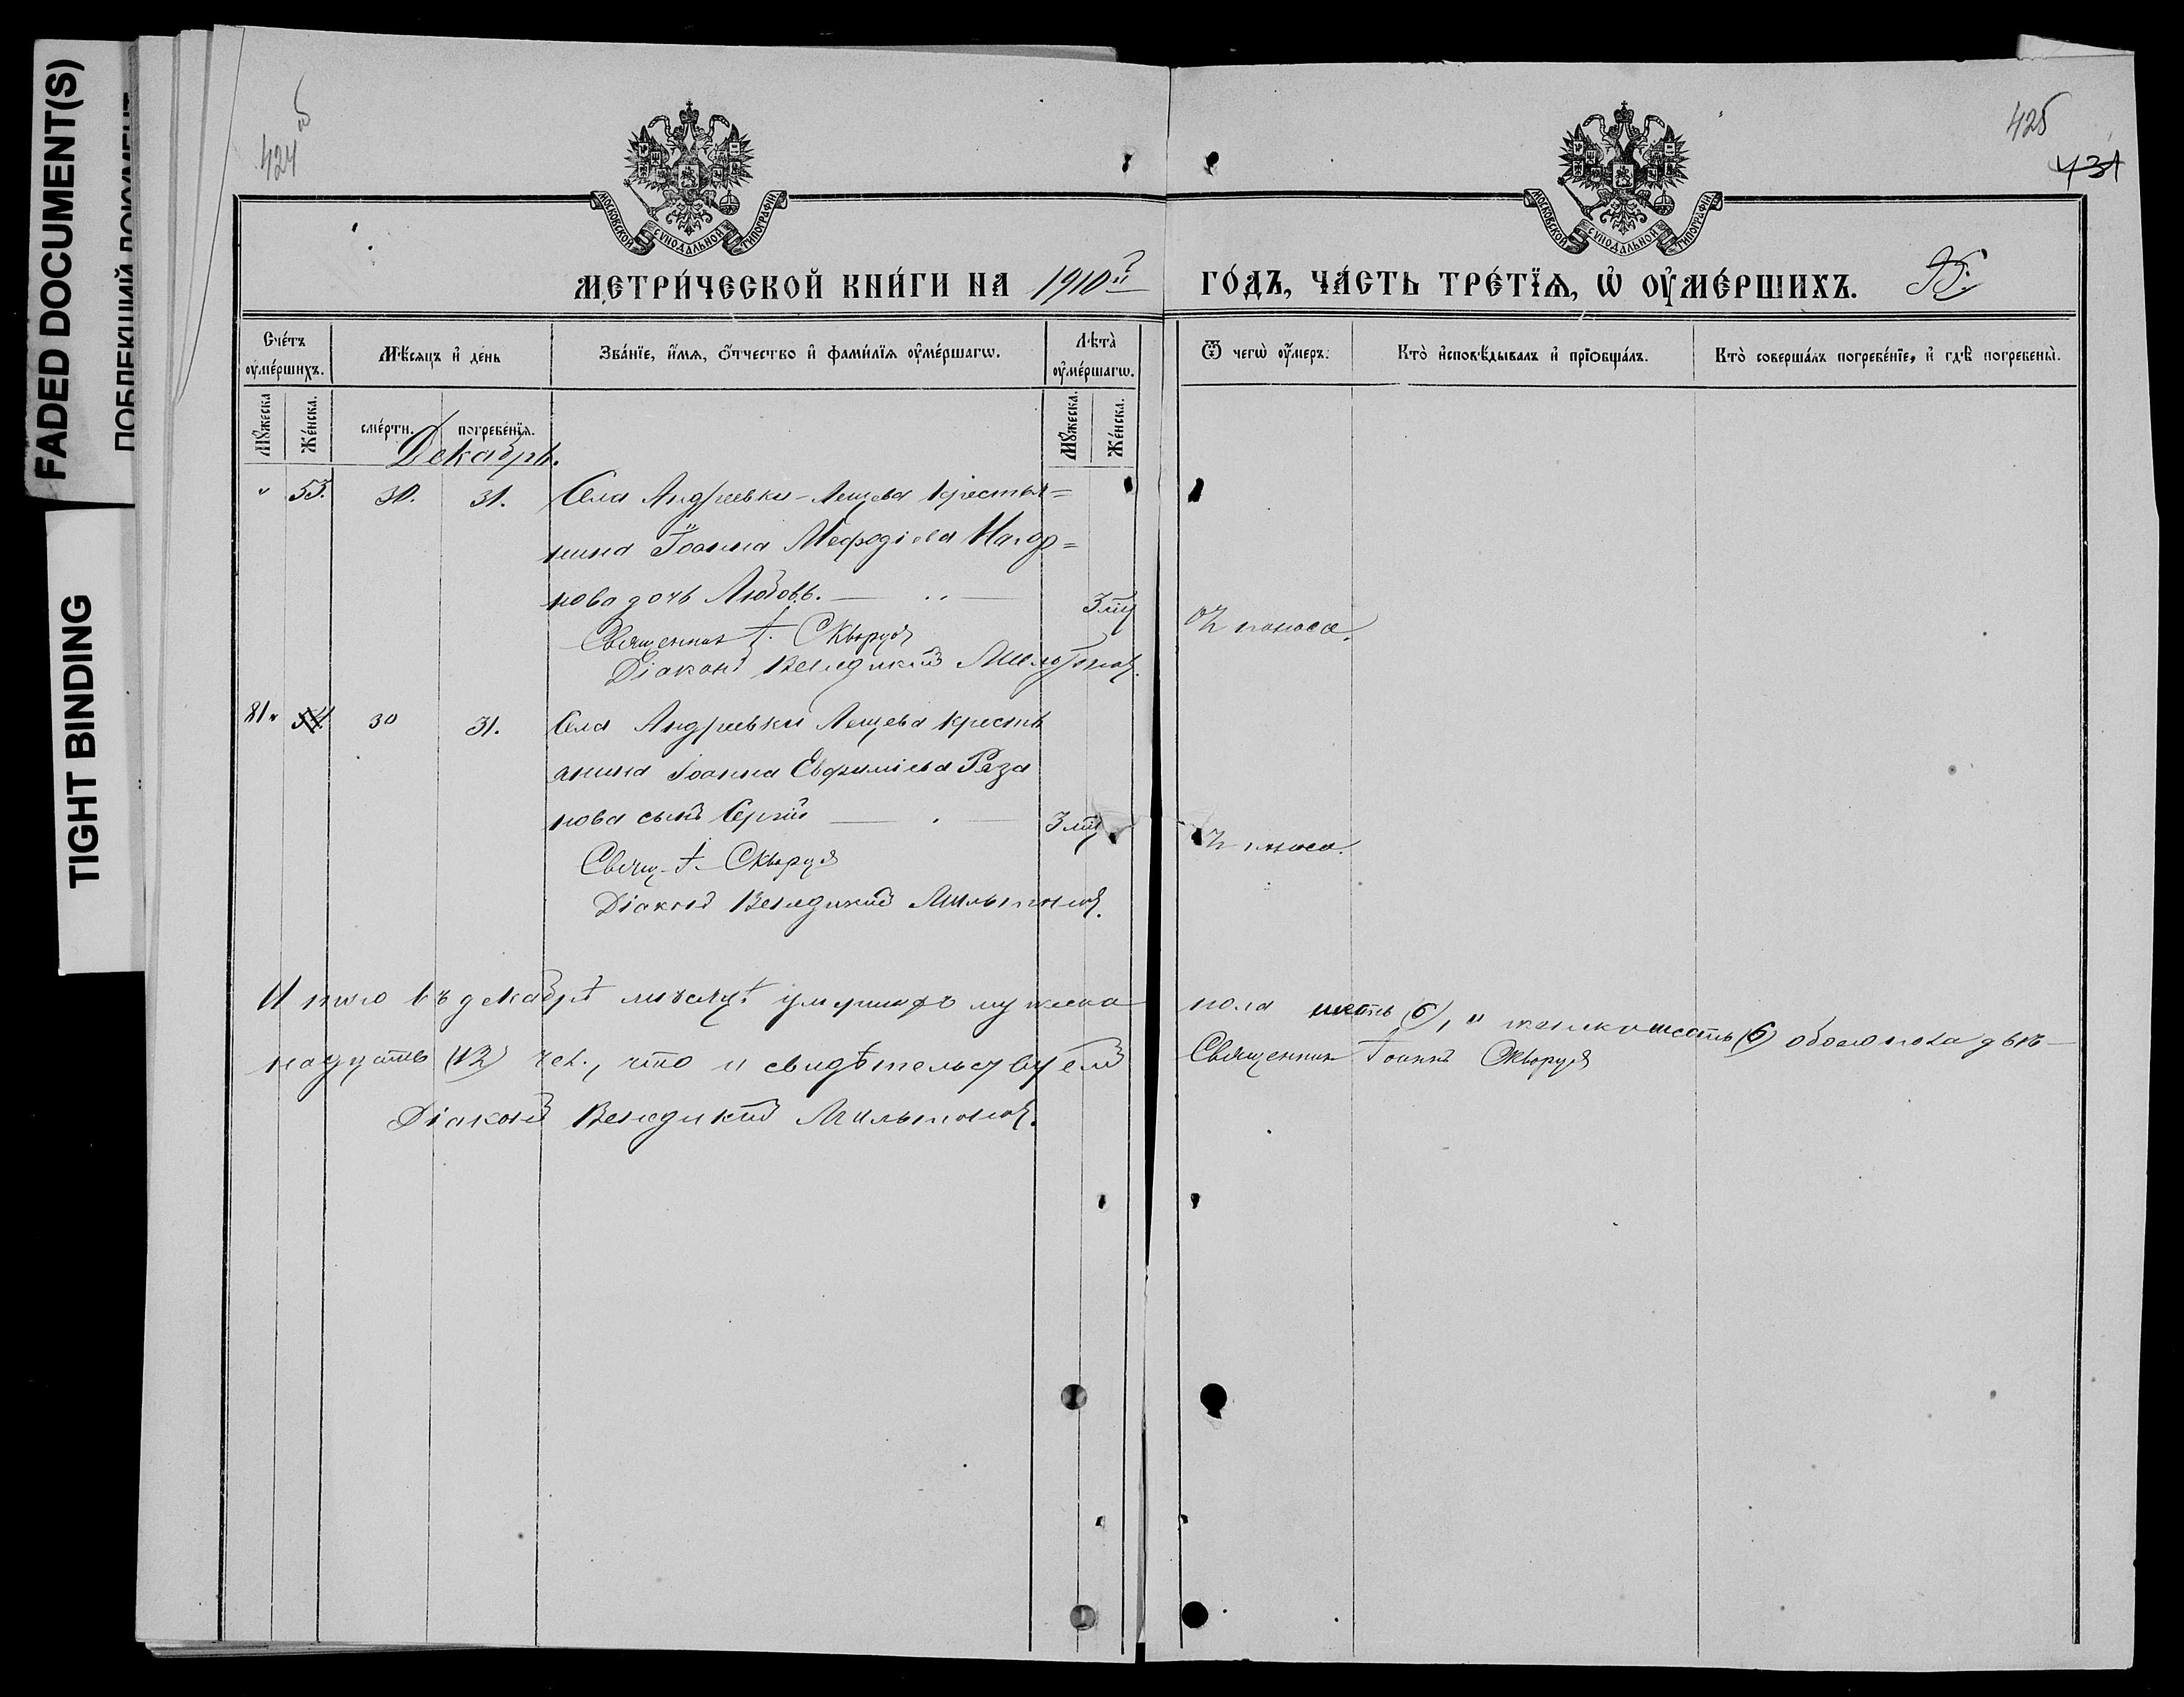 FADED DOCUMENT(S)
TIGHT BINDING
424 об
425
431
МОСКОВСКОЙ СѴНОДАЛЬНОЙ ТИПОГРАФІИ
МОСКОВСКОЙ СѴНОДАЛЬНОЙ ТИПОГРАФІИ
МЕТРИ́ЧЕСКОЙ КНИ́ГИ НА 1910й ГО́ДЪ, ЧА́СТЬ ТРЕ́ТЇѦ, Ѡ҆ ОУ҆МЕ́РШИХЪ.
Сче́тъ оу҆ме́ршихъ. Мѣ́сяцъ и҆ де́нь Зва́нїе, и҆́мя, ѻ҆́тчество и҆ фами́лїя оу҆ме́ршагѡ. Лѣ̑та̀ оу҆ме́ршагѡ. Ѿ чегѡ̀ оу҆́меръ. Кто̀ и҆сповѣ́дывалъ и҆ прїѻбща́лъ. Кто̀ соверша́лъ погребе́нїе, и҆ гдѣ̀ погребены̀.
Мꙋ́жеска Же́нска. сме́рти. погребе́нїя. Мꙋ́жеска. Же́нска.
Декабрь.
" 53. 30. 31. Села Андреевки-Лещева крестья=
нина Іоанна Мефодіева Нагор=
нова дочь Любовь. 3 мц отъ поноса.
Священник І. Скворуов
Діаконъ Венедиктъ Мильтонов.
81 " 54. 30 31. Села Андреевки Лещева кресть
янина Іоанна Евфиміева Ряза
нова сынъ Сергій 3 мц отъ поноса.
Свящ. І. Скворуов
Діаконъ Венедиктъ Мильтонов.
Итого въ декабрѣ мѣсяцѣ умершихъ мужеска пола шесть (6), и женска шесть (6) обоего пола двѣ-
надцать (12) чел., что и свидѣтельствуемъ Священник Іоаннъ Скворуов
Діаконъ Венедиктъ Мильтонов.